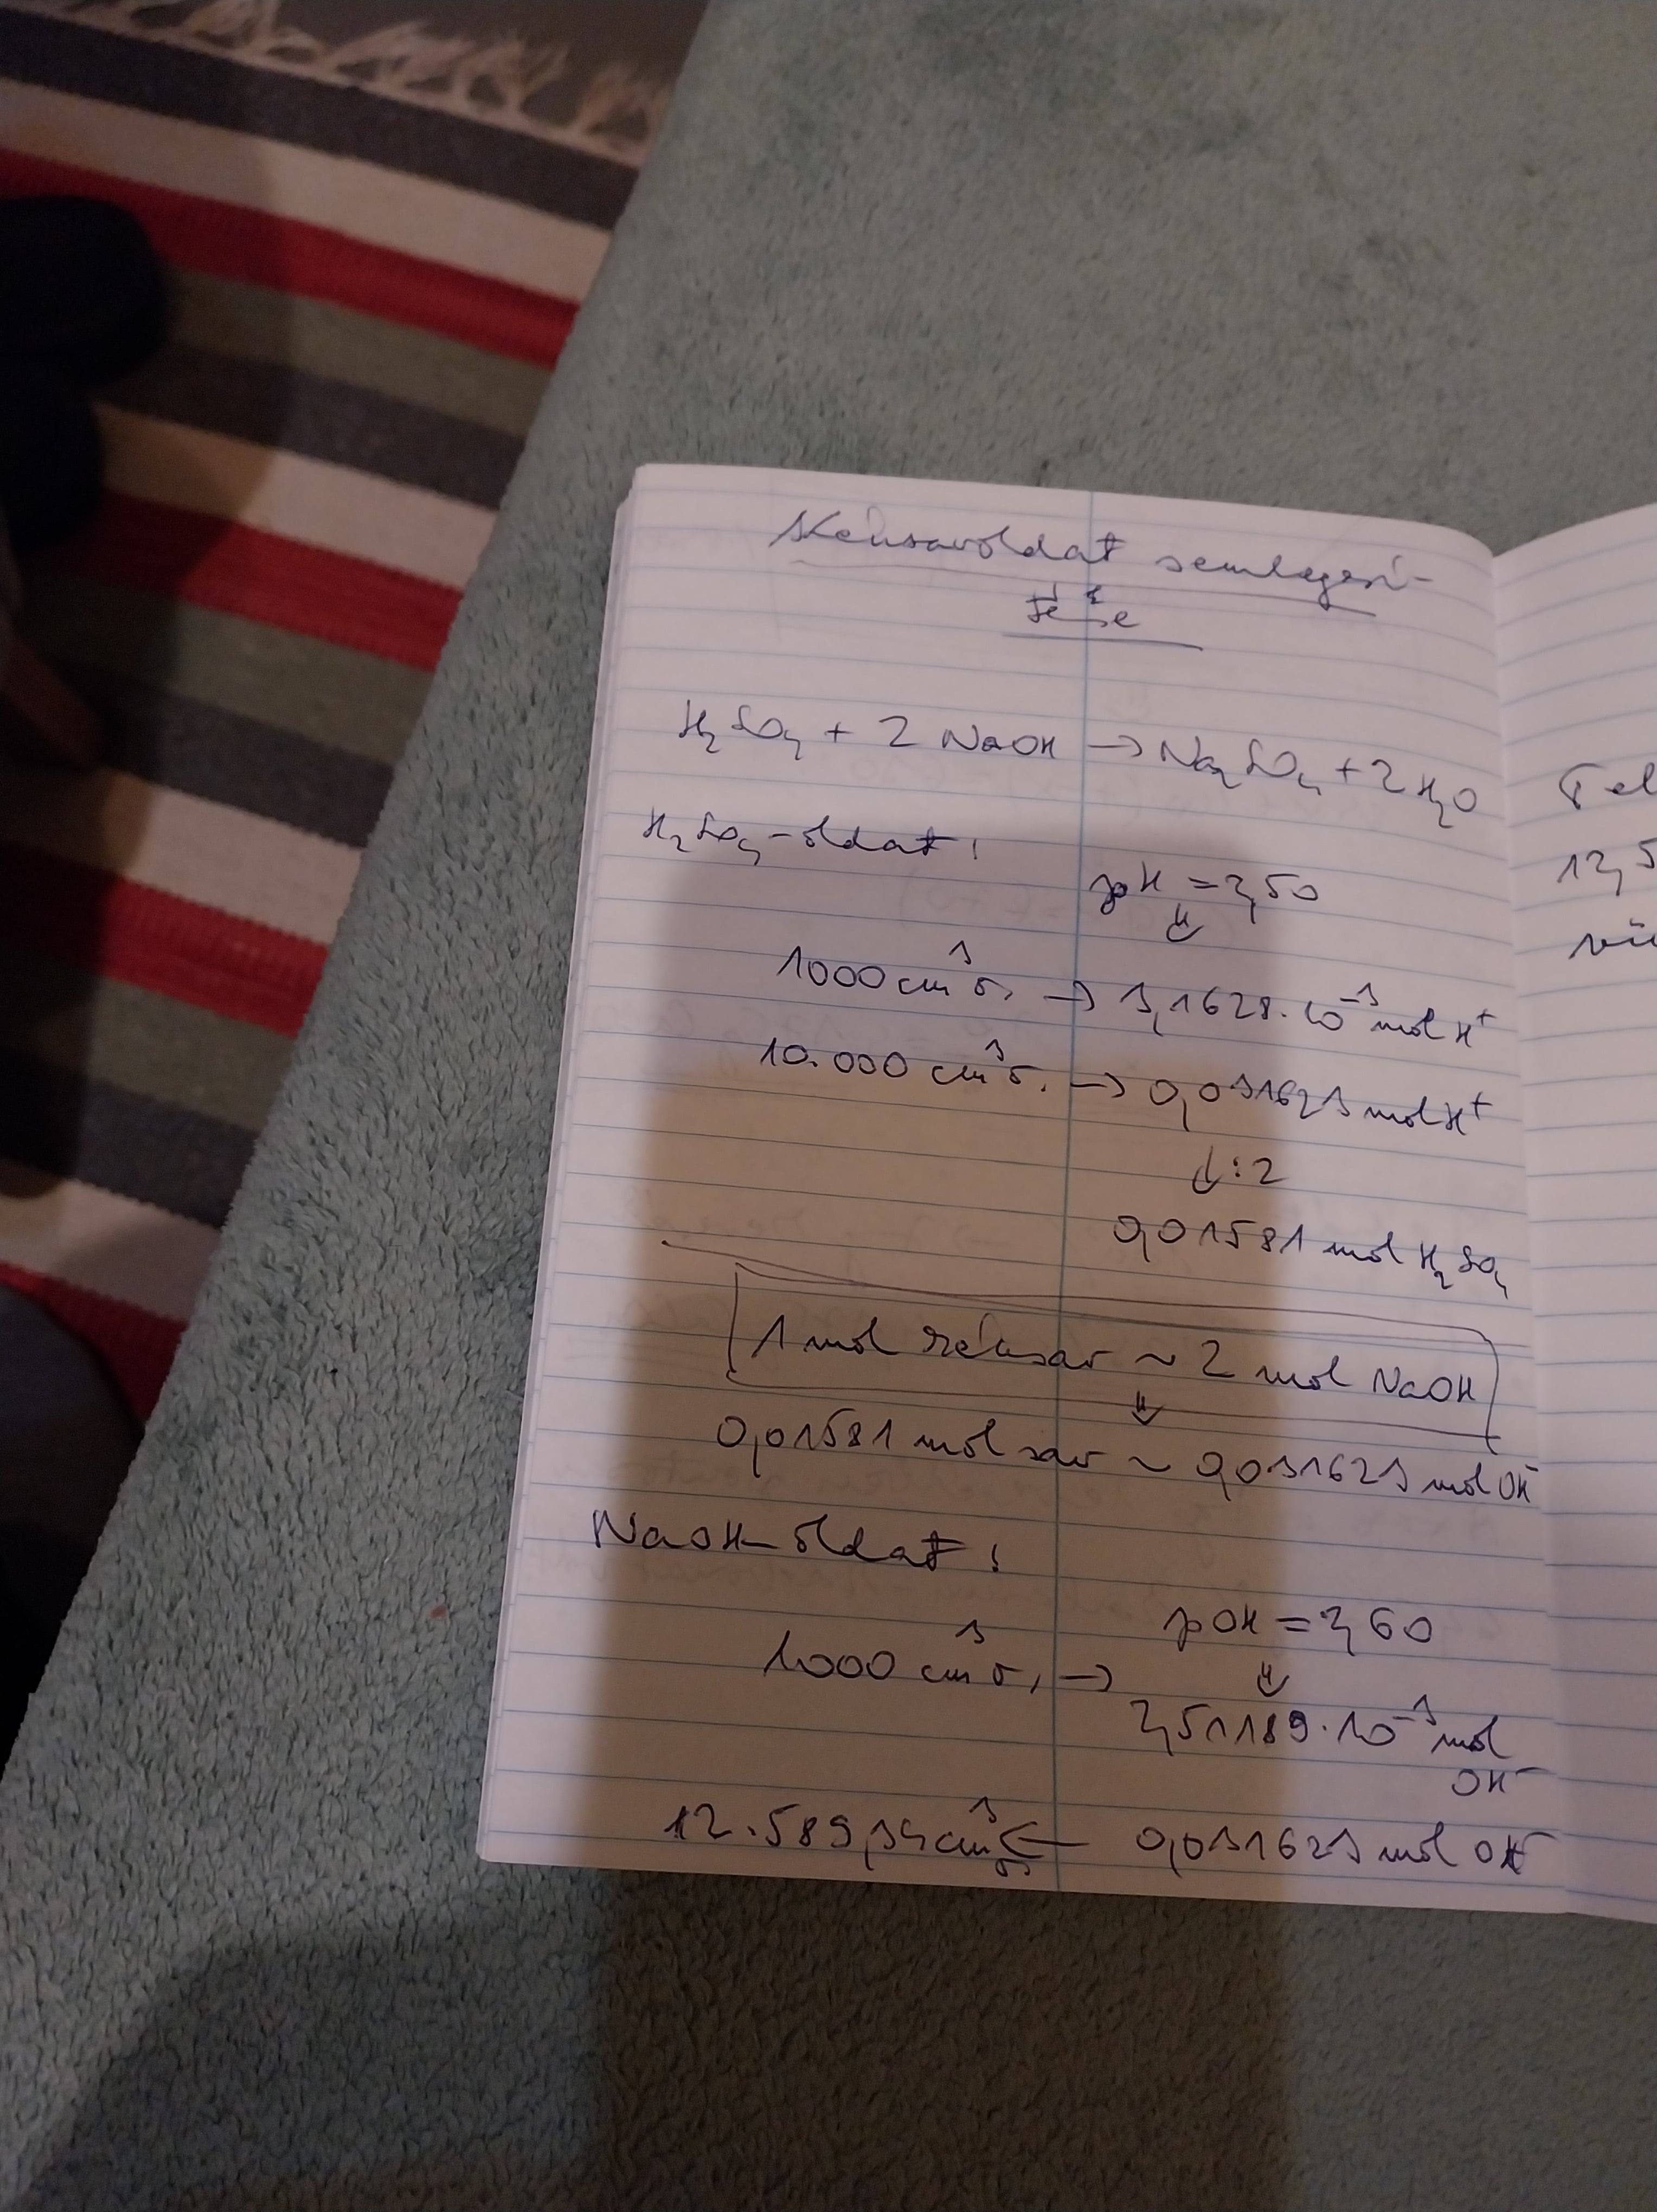 Kénsavoldat semlegesí-
tése
H₂SO₄ + 2 NaOH → Na₂SO₄ + 2 H₂O
H₂SO₄-oldat:
pH = 2,50
⇓
1000 cm³ o. → 3,1628·10⁻³ mol H⁺
10.000 cm³ o. → 0,031623 mol H⁺
↓ :2
0,01581 mol H₂SO₄
1 mol kénsav ~ 2 mol NaOH
⇓
0,01581 mol sav ~ 0,031623 mol OH⁻
NaOH-oldat:
pOH = 2,60
⇓
1000 cm³ o. →
2,51189·10⁻³ mol
OH⁻
12.589,34 cm³ o. ← 0,031623 mol OH⁻
Fel
12,5